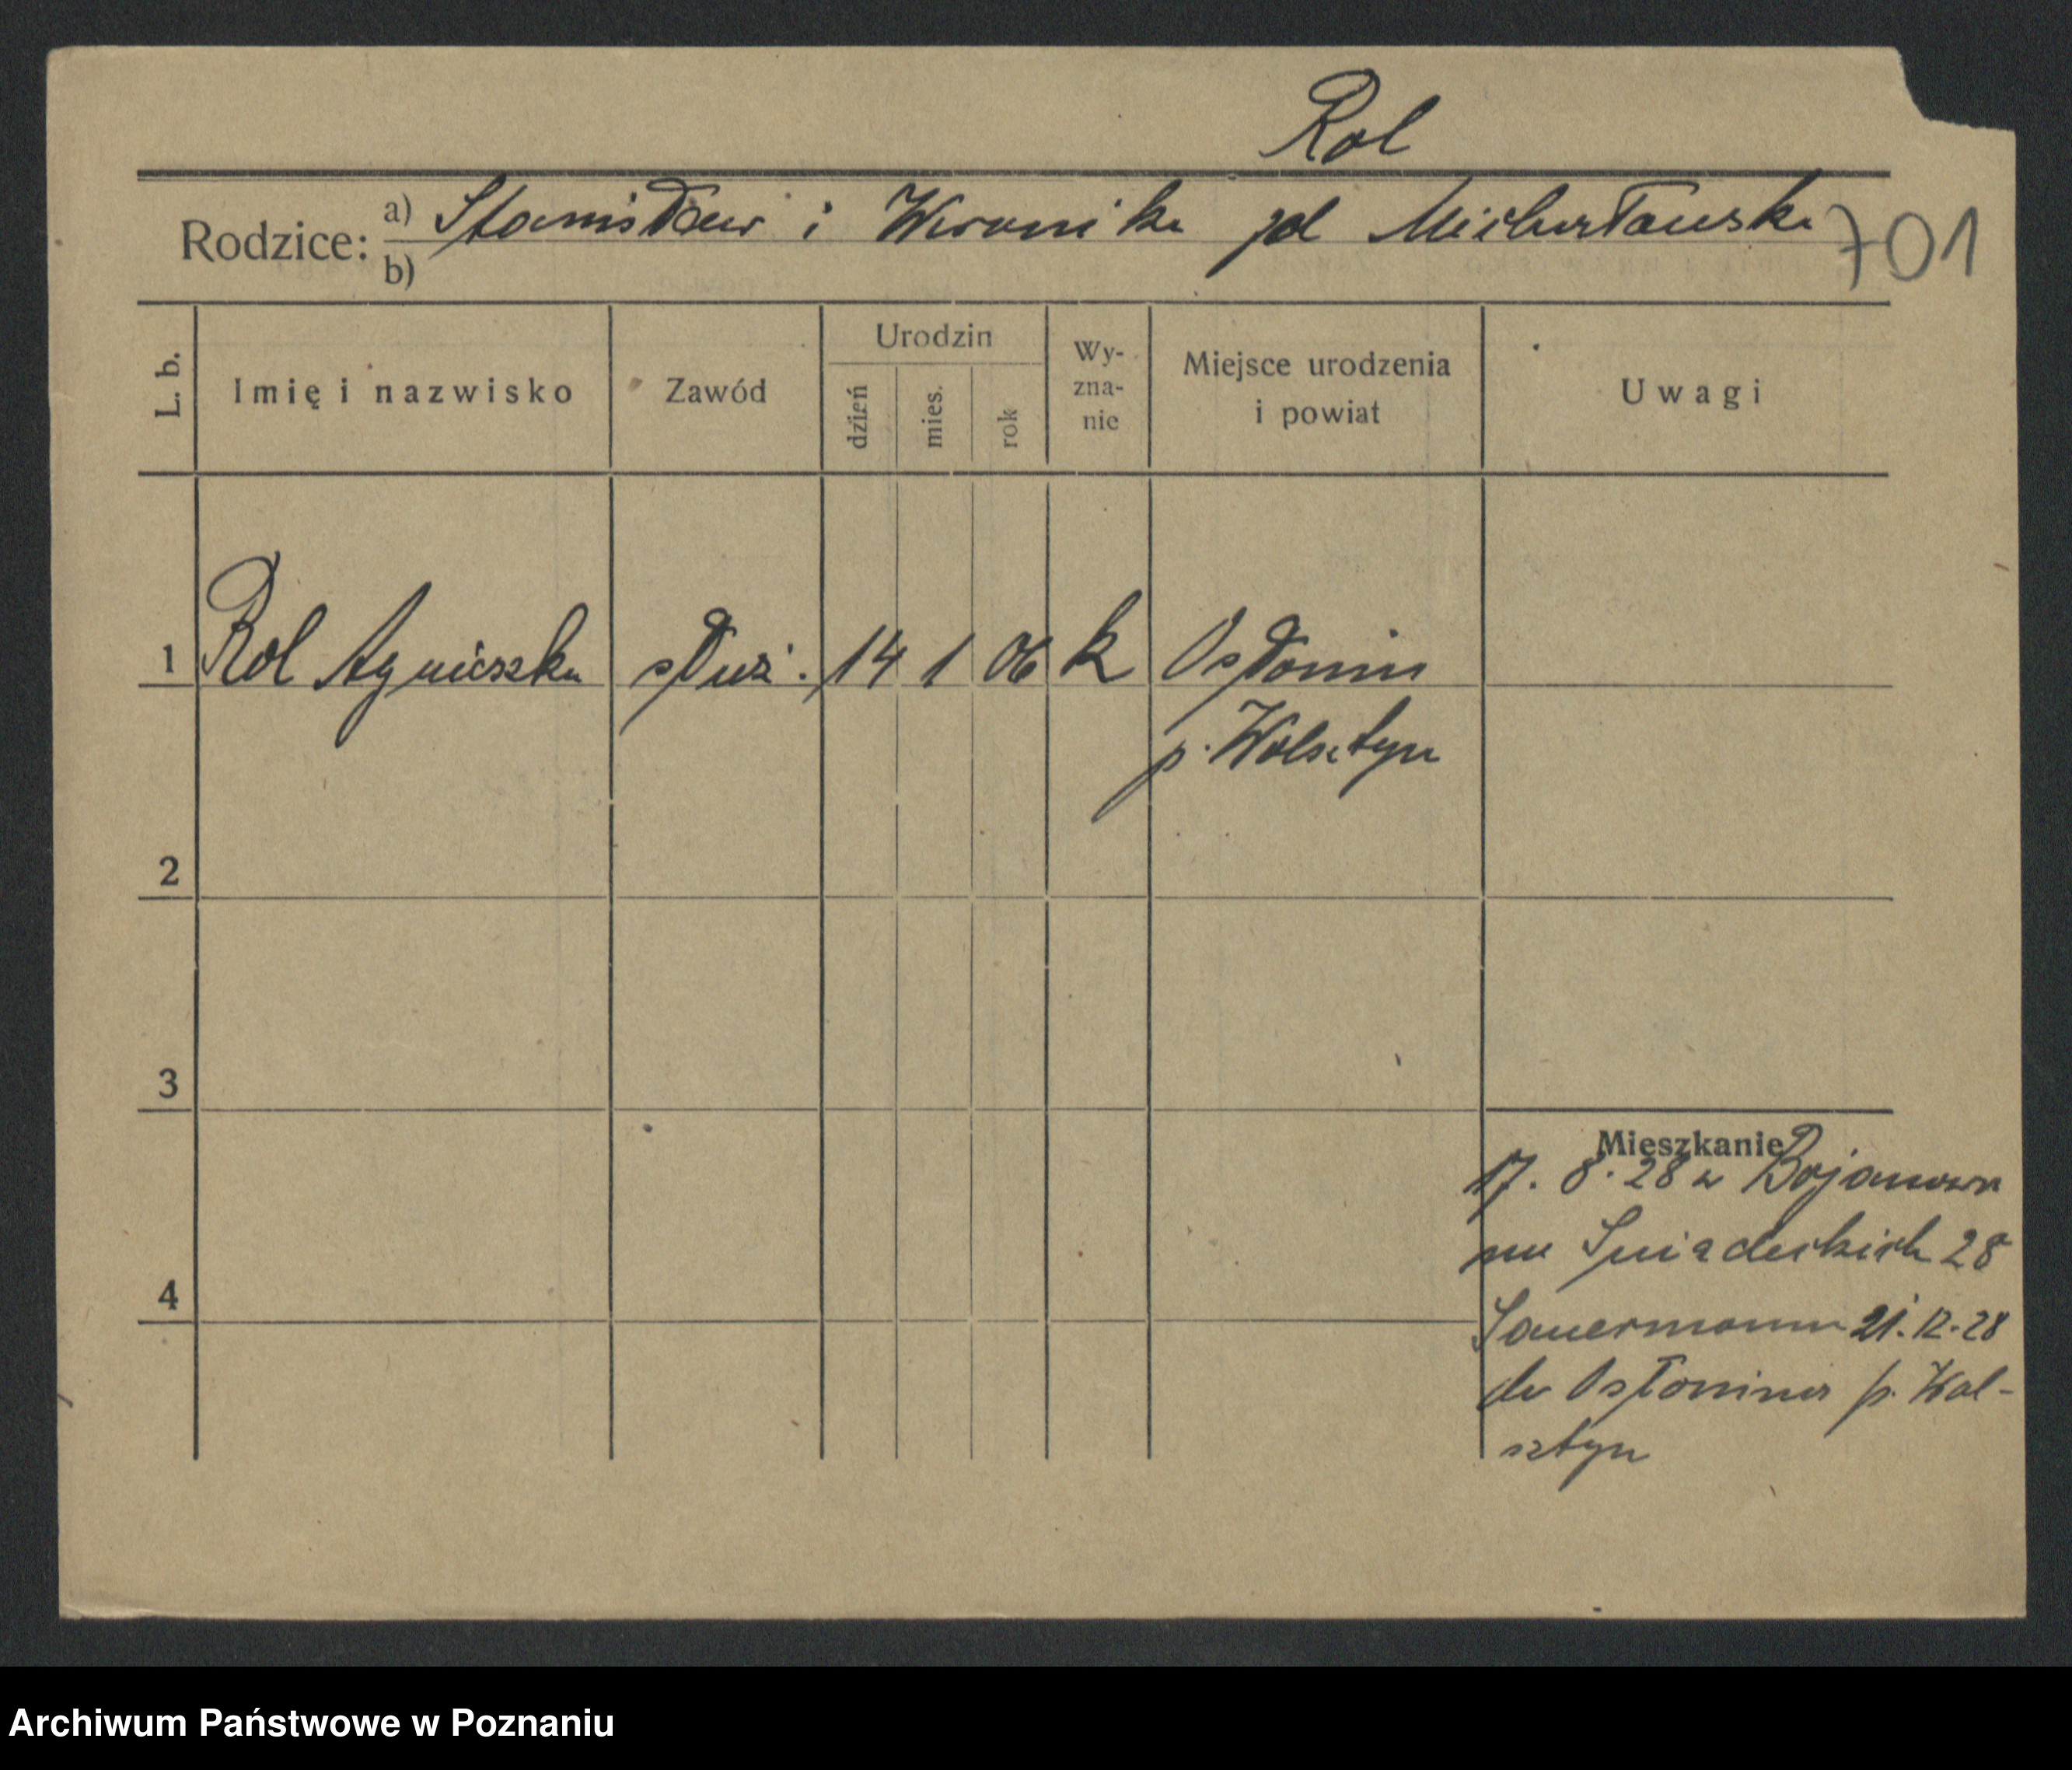 Rol
Rodzice: a) Stanisław i Weronika zd Michałowska
b)
701
L. b. Imię i nazwisko Zawód Urodzin dzień mies. rok Wy-zna-nie Miejsce urodzenia i powiat Uwagi
1 Rol Agnieszka służ. 14 1 06 k Osłonin
p. Wolsztyn
2
3
Mieszkanie
17. 8. 28 z Bojanowa
na Śniadeckich 28
4
21.12.28
do Osłonina p. Wol-
sztyn
Archiwum Państwowe w Poznaniu